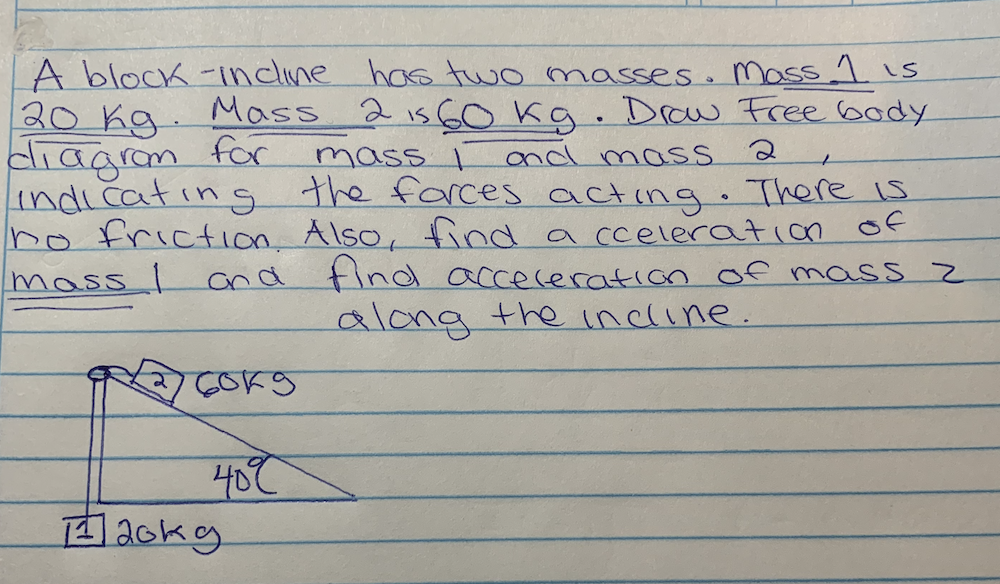 A block-incline has two masses. Mass 1 is
20 kg. Mass 2 is 60 kg. Draw Free body
diagram for mass 1 and mass 2,
indicating the forces acting. There is
no friction. Also, find acceleration of
mass 1 and find acceleration of mass 2
along the incline.
2 60kg
40°
1 20kg